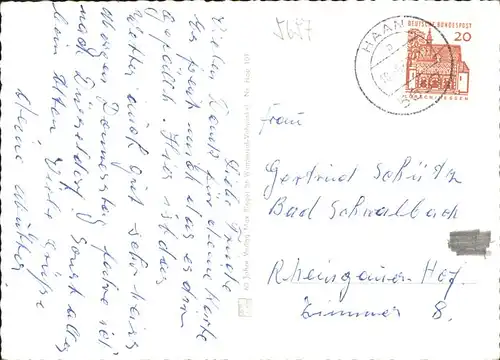 5657
HAAN
DEUTSCHE BUNDESPOST
20
LORSCH/HESSEN
Frau
Gertrud Schütz
Bad Schwalbach
Rheingauer-Hof.
Zimmer 8.
Liebe
Vielen Dank für deine Karte
Es freut mich das es dir
gefällt. Hier ist das
Wetter auch gut sehr heiss
Morgen Donnerstag fahre ich
nach Düsseldorf sonst alles
beim Alten Viele Grüße
deine Mutter